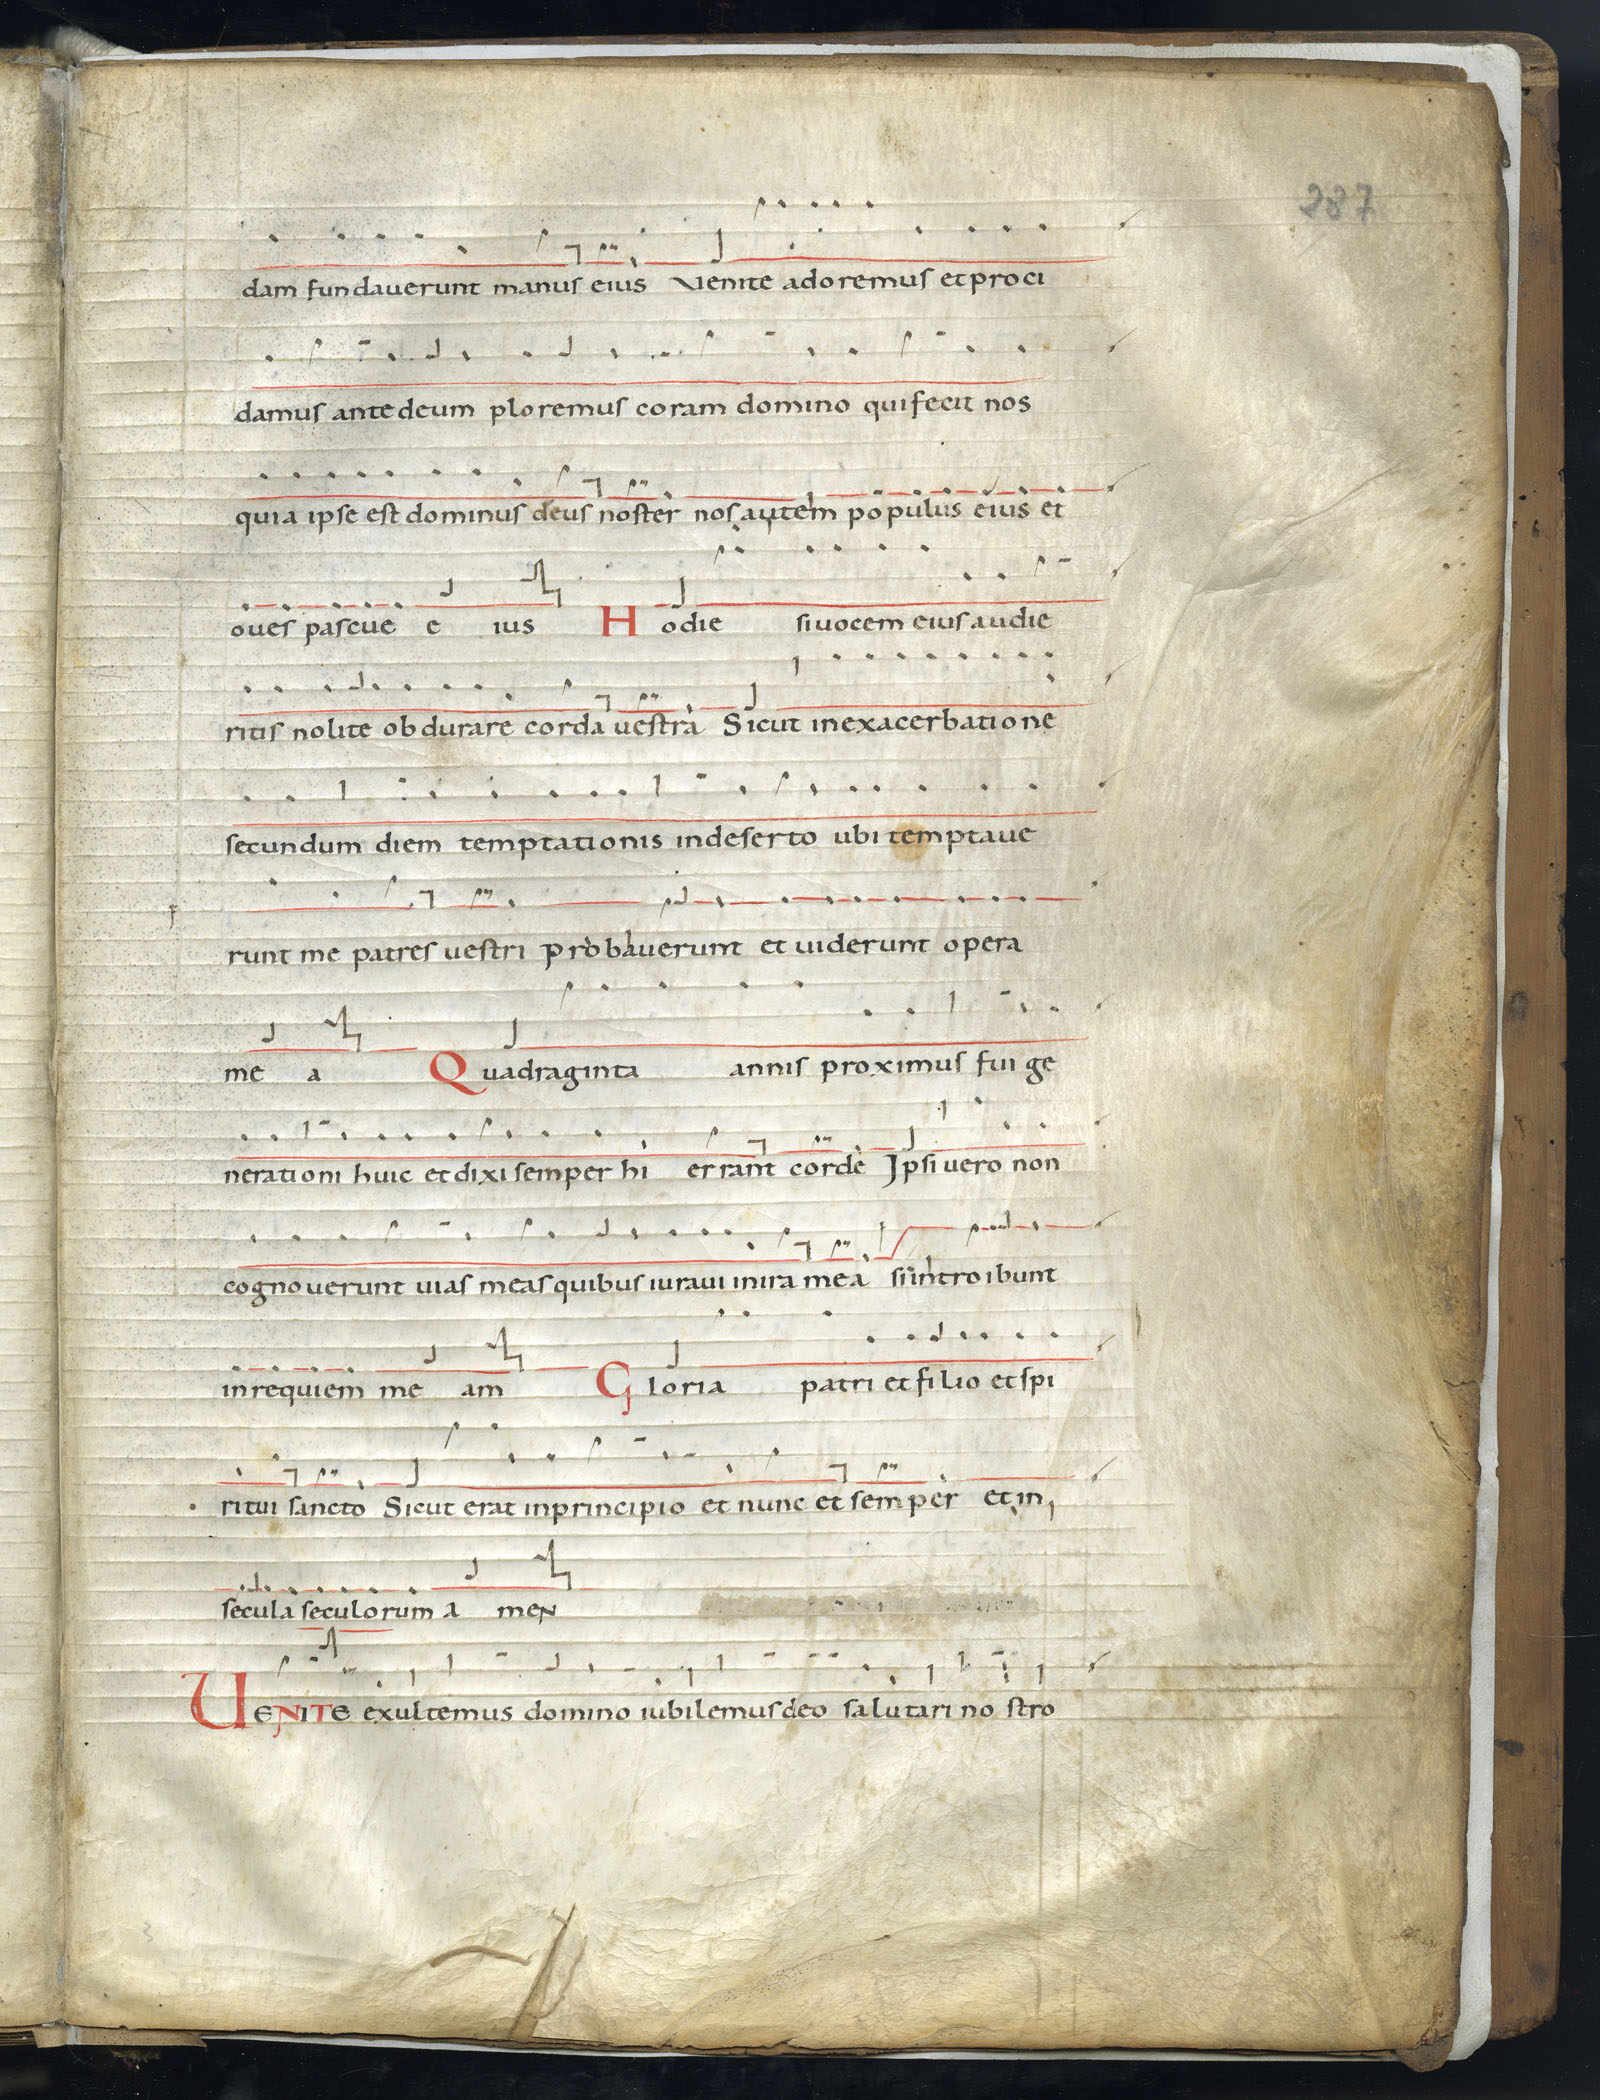 287
dam fundauerunt manus eius Venite adoremus et proci
damus ante deum ploremus coram domino qui fecit nos
quia ipse est dominus deus noster nos autem populus eius et
oues pascue e ius Hodie si uocem eius audie
ritis nolite obdurare corda uestra Sicut in exacerbatione
secundum diem temptationis in deserto ubi temptaue
runt me patres uestri Probauerunt et uiderunt opera
me a Quadraginta annis proximus fui ge
nerationi huic et dixi semper hi errant corde Ipsi uero non
cognouerunt uias meas quibus iuraui in ira mea si introibunt
in requiem me am Gloria patri et filio et spi
ritui sancto Sicut erat in principio et nunc et semper et in
secula seculorum a men
Uenite exultemus domino iubilemus deo salutari no stro